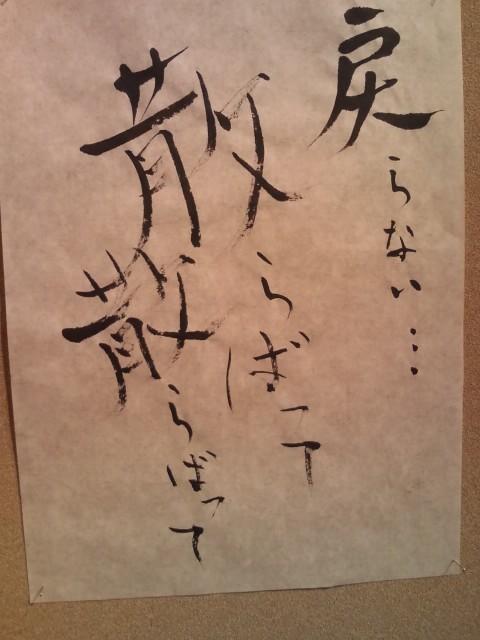 戻らない…
散らばって
散らばって